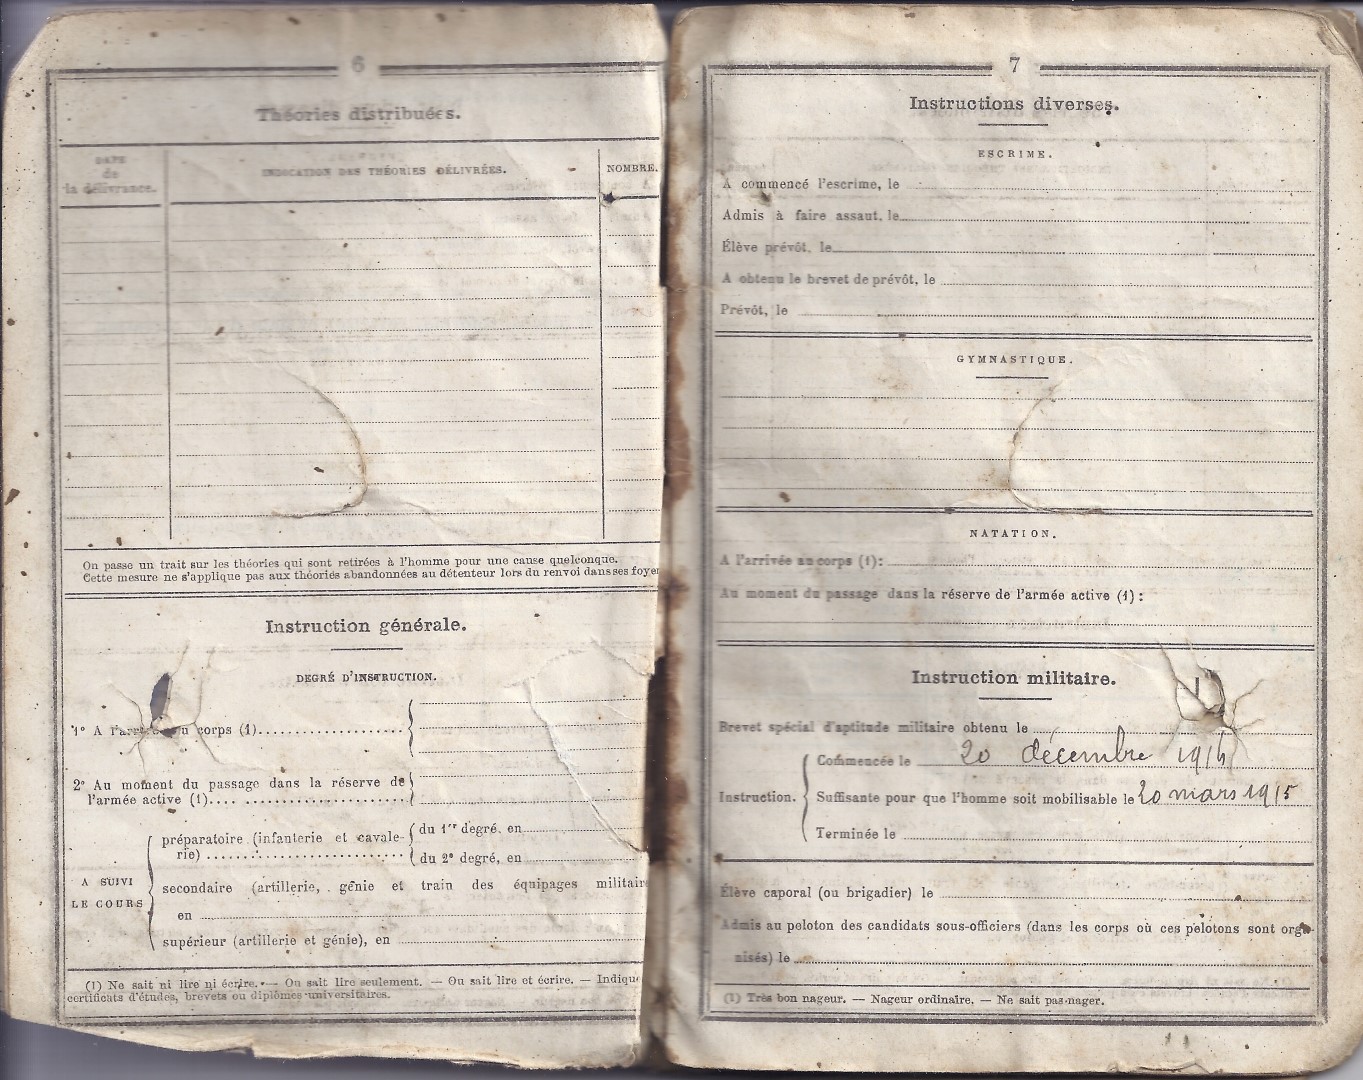 6
Théories distribuées.
DATE
de
la délivrance.
INDICATION DES THÉORIES DÉLIVRÉES.
NOMBRE.
On passe un trait sur les théories qui sont retirées à l'homme pour une cause quelconque.
Cette mesure ne s'applique pas aux théories abandonnées au détenteur lors du renvoi dans ses foye
Instruction générale.
DEGRÉ D'INSTRUCTION.
1° A l'arrivée au corps (1)
2° Au moment du passage dans la réserve de
l'armée active (1)
A SUIVI
LE COURS
préparatoire (infanterie et cavale-
rie)
du 1er degré, en
du 2e degré, en
secondaire (artillerie, génie et train des équipages militair
en
supérieur (artillerie et génie), en
(1) Ne sait ni lire ni écrire. — Ou sait lire seulement. — Ou sait lire et écrire. — Indique
certificats d'études, brevets ou diplômes universitaires.
7
Instructions diverses.
ESCRIME.
A commencé l'escrime, le
Admis à faire assaut, le
Élève prévôt, le
A obtenu le brevet de prévôt, le
Prévôt, le
GYMNASTIQUE.
NATATION.
A l'arrivée au corps (1):
Au moment du passage dans la réserve de l'armée active (1) :
Instruction militaire.
Brevet spécial d'aptitude militaire obtenu le
Instruction.
Commencée le 20 décembre 1914
Suffisante pour que l'homme soit mobilisable le 20 mars 1915
Terminée le
Élève caporal (ou brigadier) le
Admis au peloton des candidats sous-officiers (dans les corps où ces pelotons sont orga-
nisés) le
(1) Très bon nageur. — Nageur ordinaire. — Ne sait pas nager.